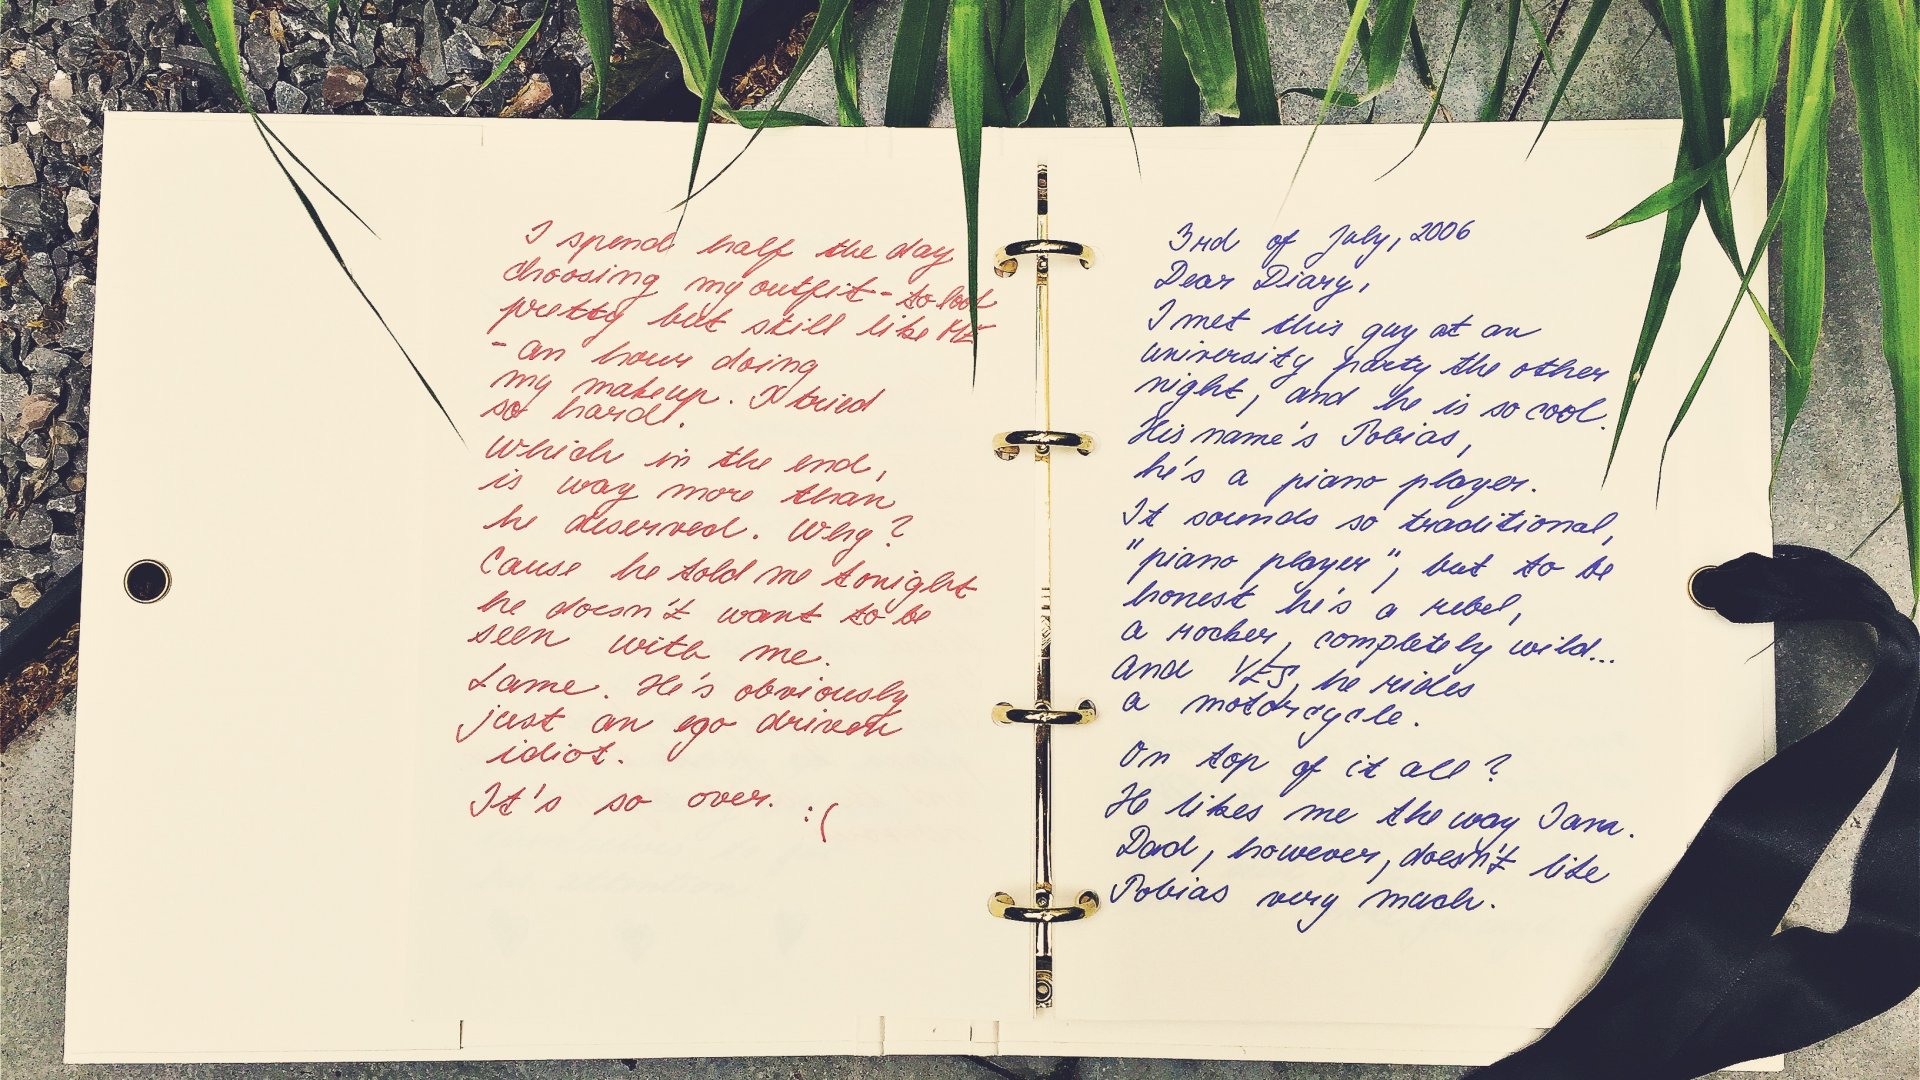 I spend half the day
choosing my outfit - to look
pretty but still like ME
- an hour doing
my makeup. I tried
so hard.
Which in the end,
is way more than
he deserved. Why?
Cause he told me tonight
he doesn't want to be
seen with me.
Lame. He's obviously
just an ego driven
idiot.
It's so over. :(
3rd of July, 2006
Dear Diary,
I met this guy at an
university party the other
night, and he is so cool.
His name's Tobias,
he's a piano player.
It sounds so traditional,
"piano player", but to be
honest he's a rebel,
a rocker, completely wild...
and YES, he rides
a motorcycle.
On top of it all?
He likes me the way I am.
Dad, however, doesn't like
Tobias very much.